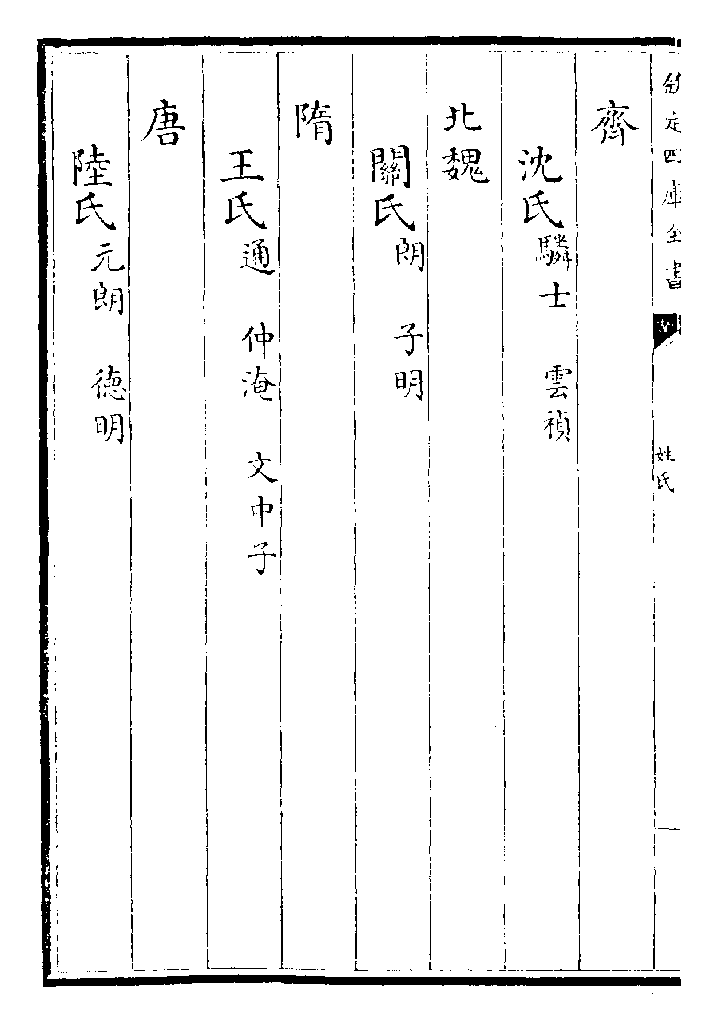 欽定四庫全書
姓氏
齊
沈氏驎士 雲禎
北魏
關氏朗 子明
隋
王氏通 仲淹 文中子
唐
陸氏元朗 德明